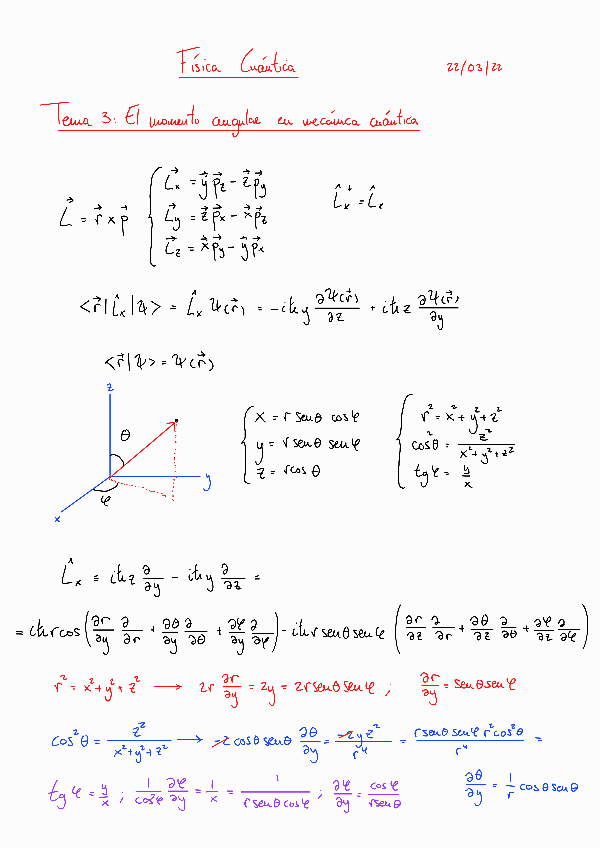 Física Cuántica 22/03/22
Tema 3: El momento angular en mecánica cuántica
L⃗ = r⃗ x p⃗ { L⃗x = y⃗ p⃗z - z⃗ p⃗y
L⃗y = z⃗ p⃗x - x⃗ p⃗z
L⃗z = x⃗ p⃗y - y⃗ p⃗x
L̂x† = L̂x
<r⃗|L̂x|Ψ> = L̂x Ψ(r⃗) = -iħy ∂Ψ(r⃗)/∂z + iħz ∂Ψ(r⃗)/∂y
<r⃗|Ψ> = Ψ(r⃗)
z
θ
y
φ
x
{ x = r senθ cosφ
y = r senθ senφ
z = r cosθ
{ r² = x² + y² + z²
cos²θ = z²/(x² + y² + z²)
tgφ = y/x
L̂x ≡ iħz ∂/∂y - iħy ∂/∂z =
= iħr cos (∂r/∂y ∂/∂r + ∂θ/∂y ∂/∂θ + ∂φ/∂y ∂/∂φ) - iħr senθ senφ (∂r/∂z ∂/∂r + ∂θ/∂z ∂/∂θ + ∂φ/∂z ∂/∂φ)
r² = x² + y² + z² → 2r ∂r/∂y = 2y = 2r senθ senφ ; ∂r/∂y = senθ senφ
cos²θ = z²/(x² + y² + z²) → -2 cosθ senθ ∂θ/∂y = -2yz²/r⁴ = r senθ senφ r² cos²θ/r⁴ =
tgφ = y/x ; 1/cos²φ ∂φ/∂y = 1/x = 1/(r senθ cosφ) ; ∂φ/∂y = cosφ/(r senθ)
∂θ/∂y = 1/r cosθ senθ